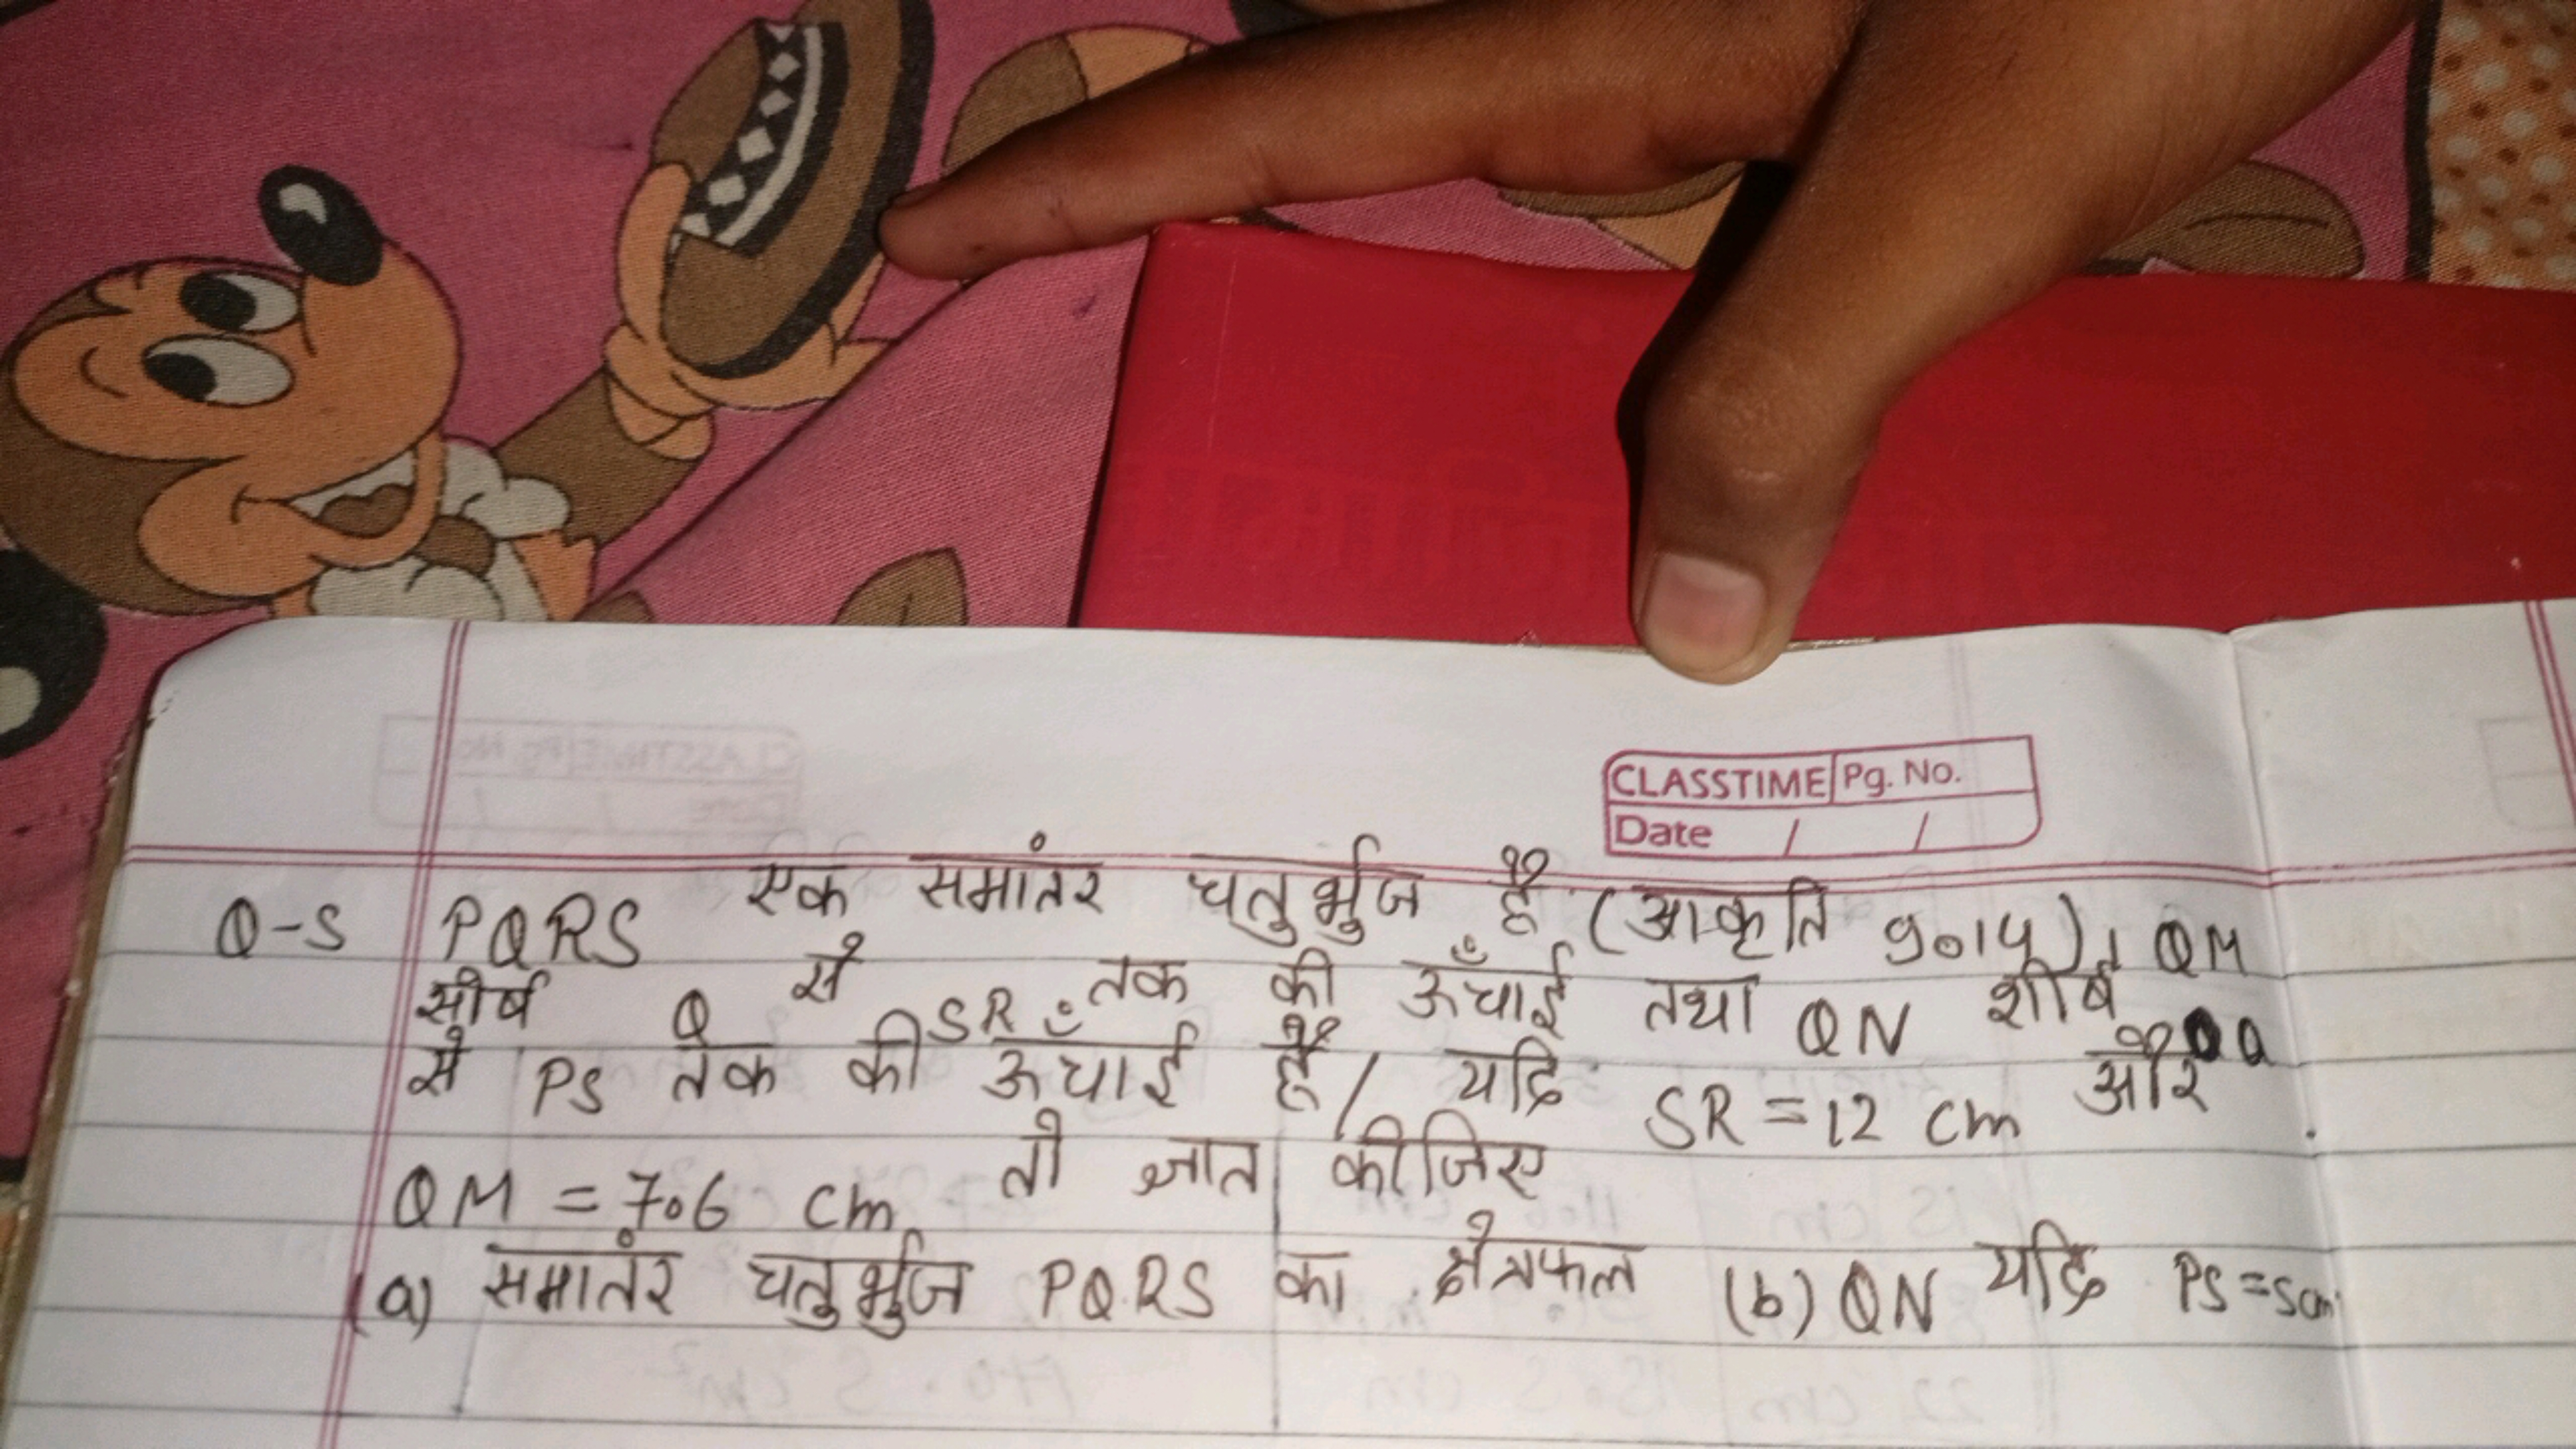 CLASSTIME Pg. No.
Date / /
Q-5 PQRS एक समांतर चतुर्भुज है (आकृति 9.14)। QM
सीर्ष Q से SR तक की ऊँचाई तथा QN शीर्ष Q
से PS तक की ऊँचाई है। यदि SR = 12 cm और
QM = 7.6 cm तो ज्ञात कीजिए
(a) समांतर चतुर्भुज PQRS का क्षेत्रफल (b) QN यदि PS = 5cm